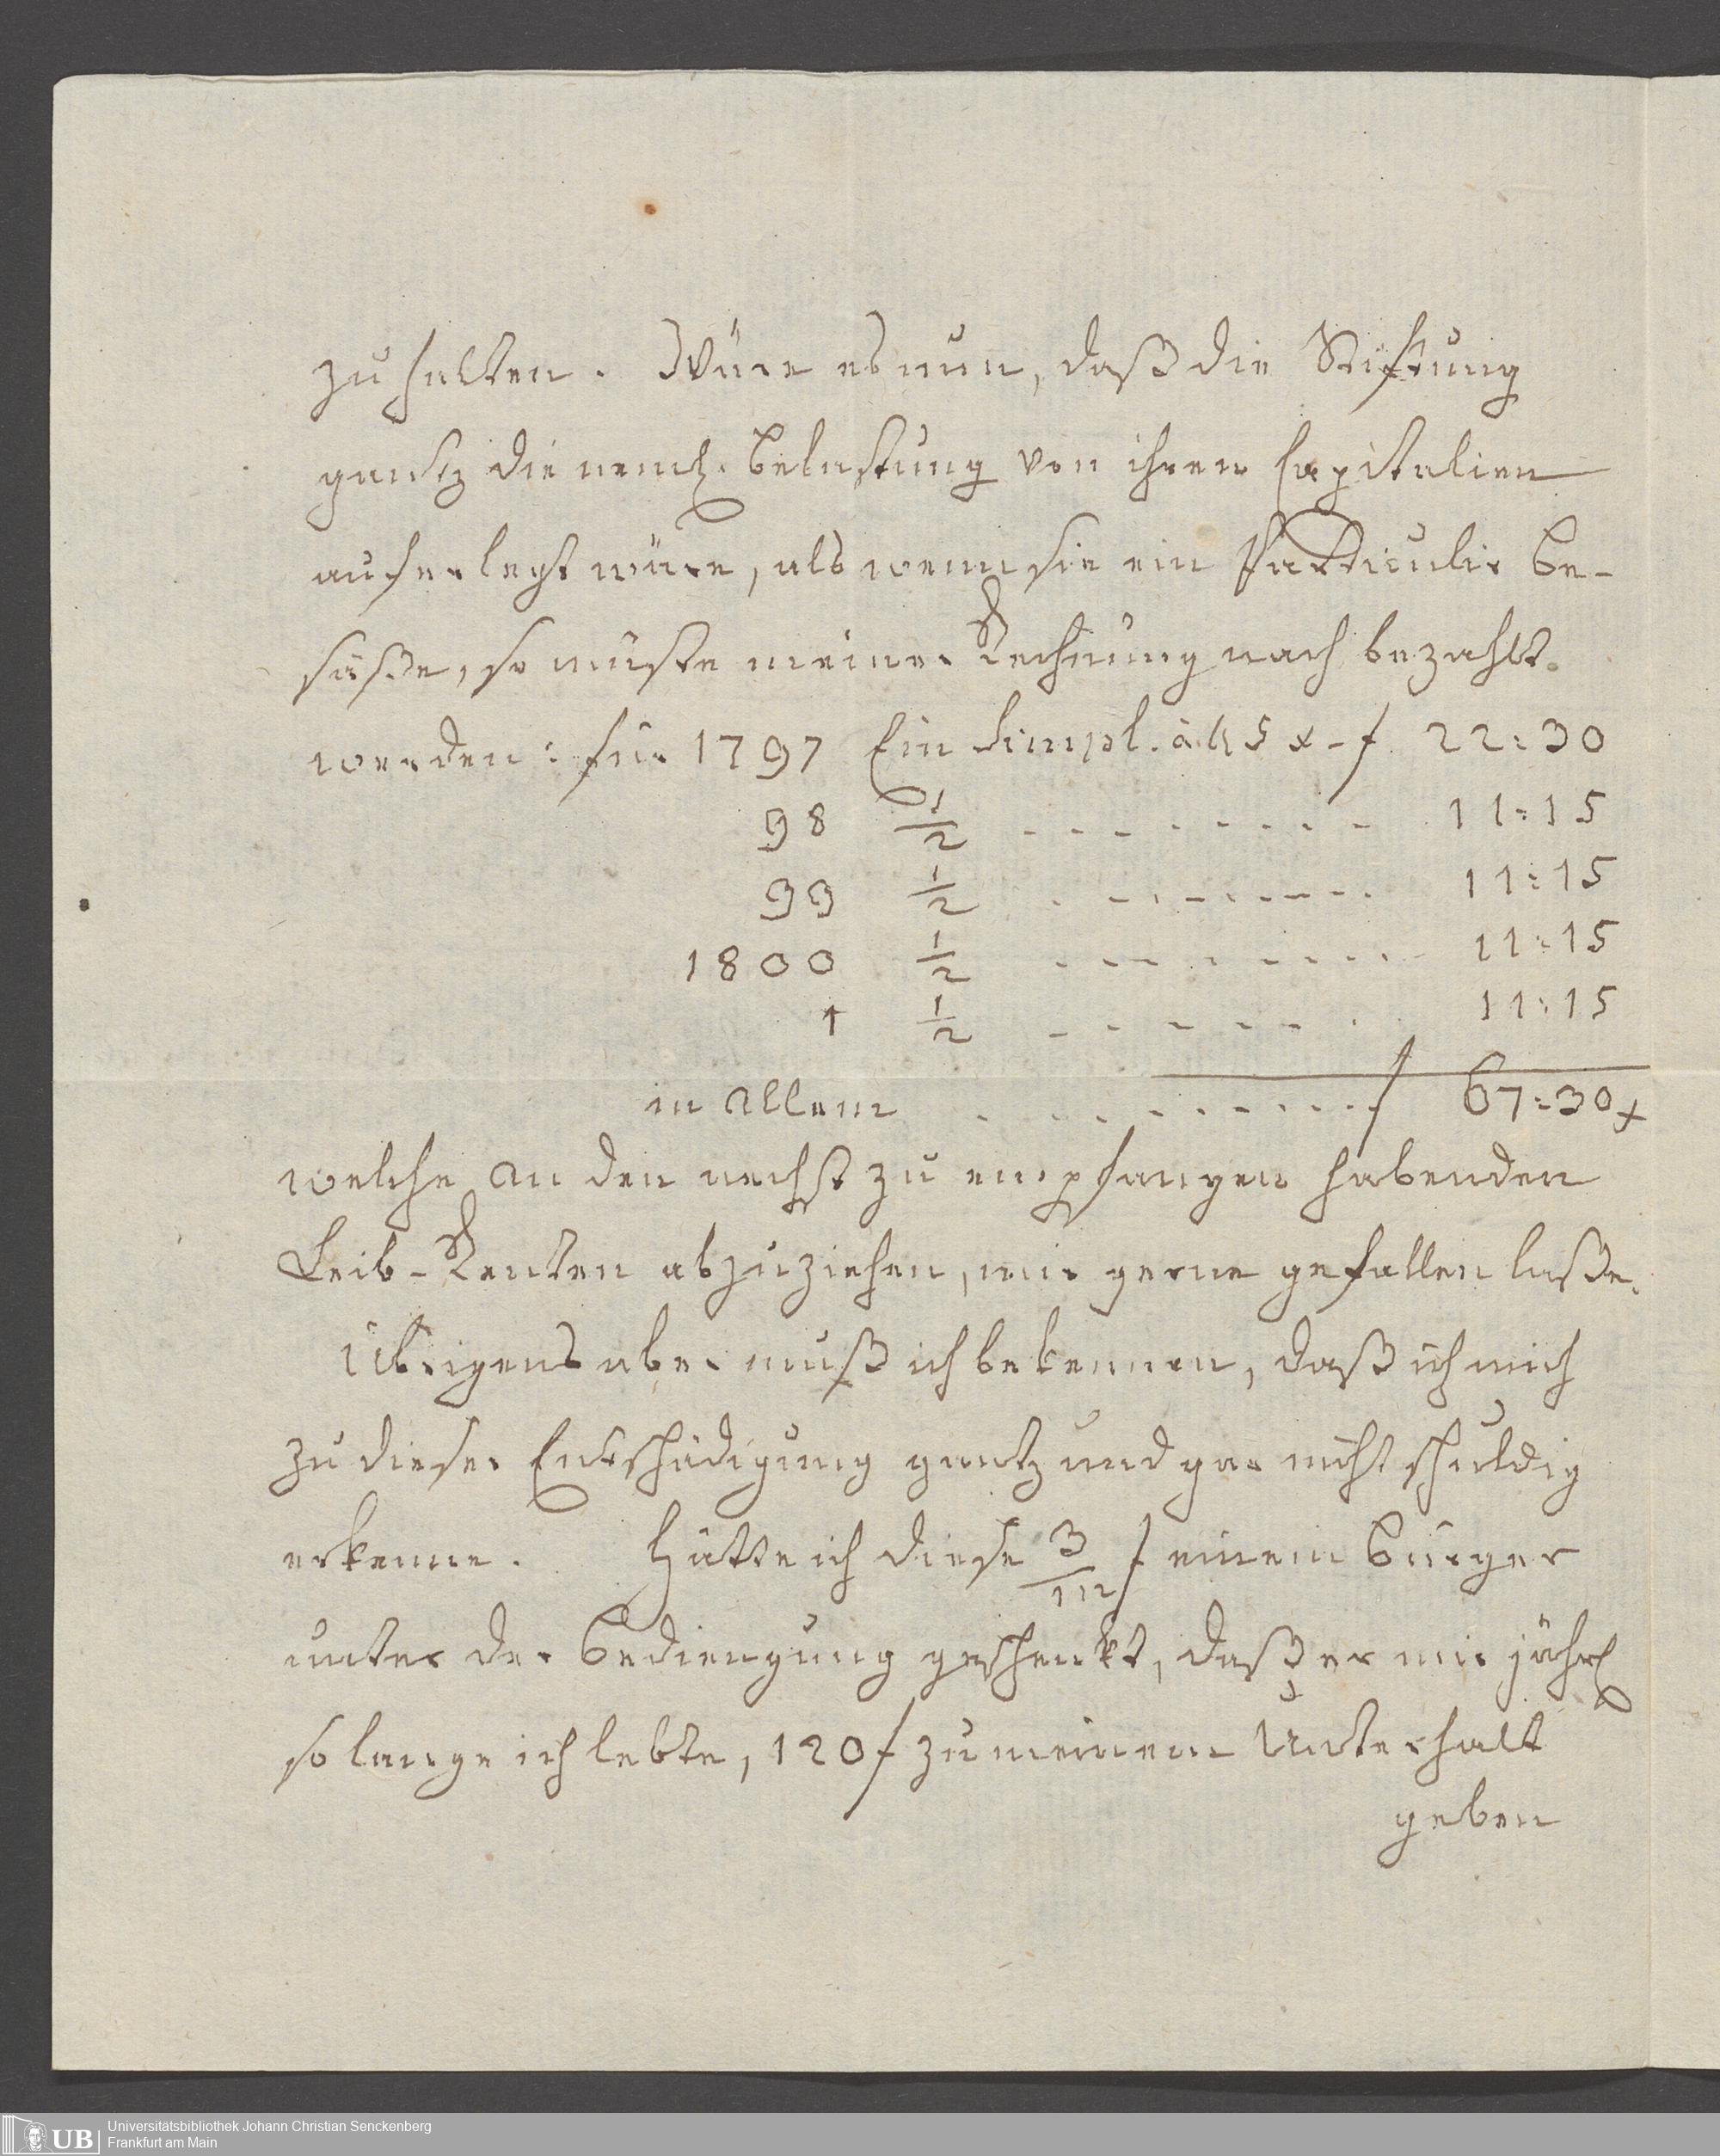 zu halten. Wäre es nun, daß die Stiftung
gantz die neml. Belastung von ihren Capitalien
auferlegt wäre, als wenn sie ein Particulir be-
säße, so müste meiner Rechnung nach bezahlt
werden: für 1797 Ein Simpl. à 45 x - f 22:30
98 1/2 - - - - - - - - - 11:15
99 1/2 - - - - - - - - - 11:15
1800 1/2 - - - - - - - - - 11:15
1 1/2 - - - - - - 11:15
in allem . . - - - - - - - f 67:30 x
welche an den nechst zu empfangen habenden
Leib-Renten abzuziehen, mir gerne gefallen laße.
Übrigens aber muß ich bekennen, daß ich mich
zu dieser Entschädigung gantz und gar nicht schuldig
erkenne. Hätte ich diese 3/m f einem Bürger
unter der Bediengung geschenkt, daß er mir jährl
so lange ich lebte, 120 f zu meinem Unterhalt
geben
UB Universitätsbibliothek Johann Christian Senckenberg
Frankfurt am Main